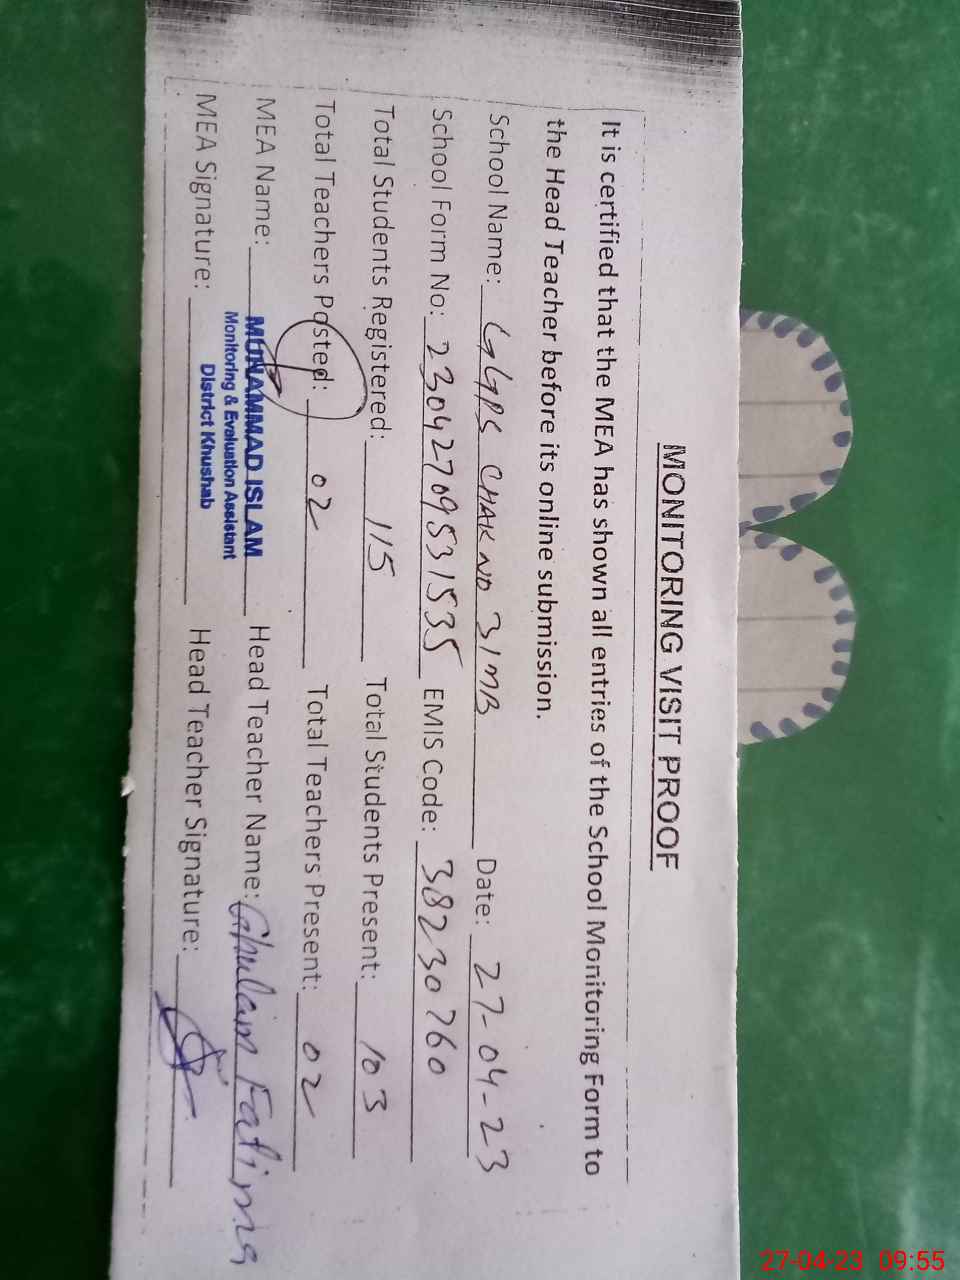 MONITORING VISIT PROOF
It is certified that the MEA has shown all entries of the School Monitoring Form to
the Head Teacher before its online submission.
School Name: GGPS CHAK NO 31MB Date: 27-04-23
School Form No: 23042709531535 EMIS Code: 38230760
Total Students Registered: 115 Total Students Present: 103
Total Teachers Posted: 02 Total Teachers Present: 02
MEA Name: MUHAMMAD ISLAM Head Teacher Name: Ghulam Fatima
Monitoring & Evaluation Assistant
District Khushab
MEA Signature: Head Teacher Signature:
27-04-23 09:55